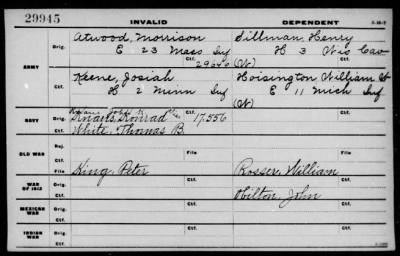 29945
INVALID
DEPENDENT
ARMY
Orig.
Atwood, Morrison
E 23 Mass Inf
Ctf.
29640
Dillman, Henry
H 3 Wis Cav
(W)
Orig.
Keene, Josiah
H 2 Minn Inf
Ctf.
Hoisington William
E 11 Mich Inf
(W)
NAVY
Orig.
Knauls, Konrad
17.556
Ctf.
White, Thomas B.
OLD WAR
Rej.
File
Ctf.
File
WAR OF 1812
Orig.
King, Peter
Ctf.
Rosser, William
Ctf.
MEXICAN WAR
Orig.
Ctf.
Ohilton, John
INDIAN WAR
Orig.
Ctf.